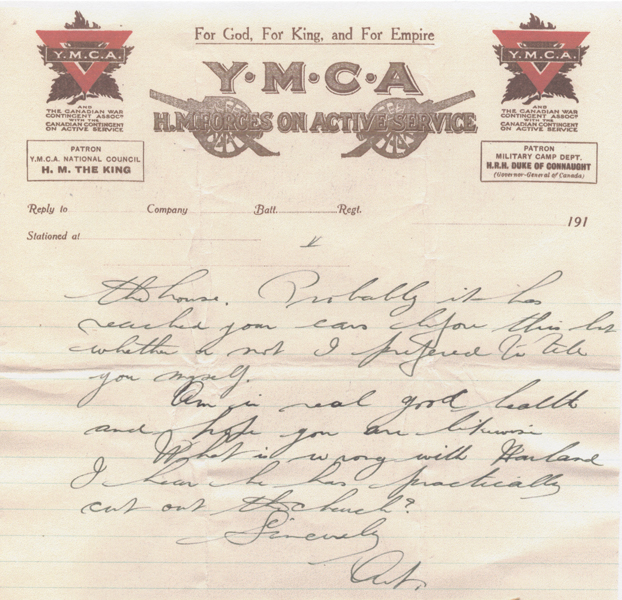 For God, For King, and For Empire
Y.M.C.A.
Y.M.C.A.
AND
THE CANADIAN WAR
CONTINGENT ASSOCN
WITH THE
CANADIAN CONTINGENT
ON ACTIVE SERVICE
Y·M·C·A
H.M. FORCES ON ACTIVE SERVICE
AND
THE CANADIAN WAR
CONTINGENT ASSOCN
WITH THE
CANADIAN CONTINGENT
ON ACTIVE SERVICE
PATRON
Y.M.C.A. NATIONAL COUNCIL
H. M. THE KING
PATRON
MILITARY CAMP DEPT.
H.R.H. DUKE OF CONNAUGHT
(Governor-General of Canada)
Reply to Company Batt. Regt.
191
Stationed at
V
the house. Probably it has
reached your ears before this but
whether or not I prefered to tell
you myself.
Am in real good health
and hope you are likewise
What is wrong with Harland
I hear he has practically
cut out the church?
Sincerely
Art.